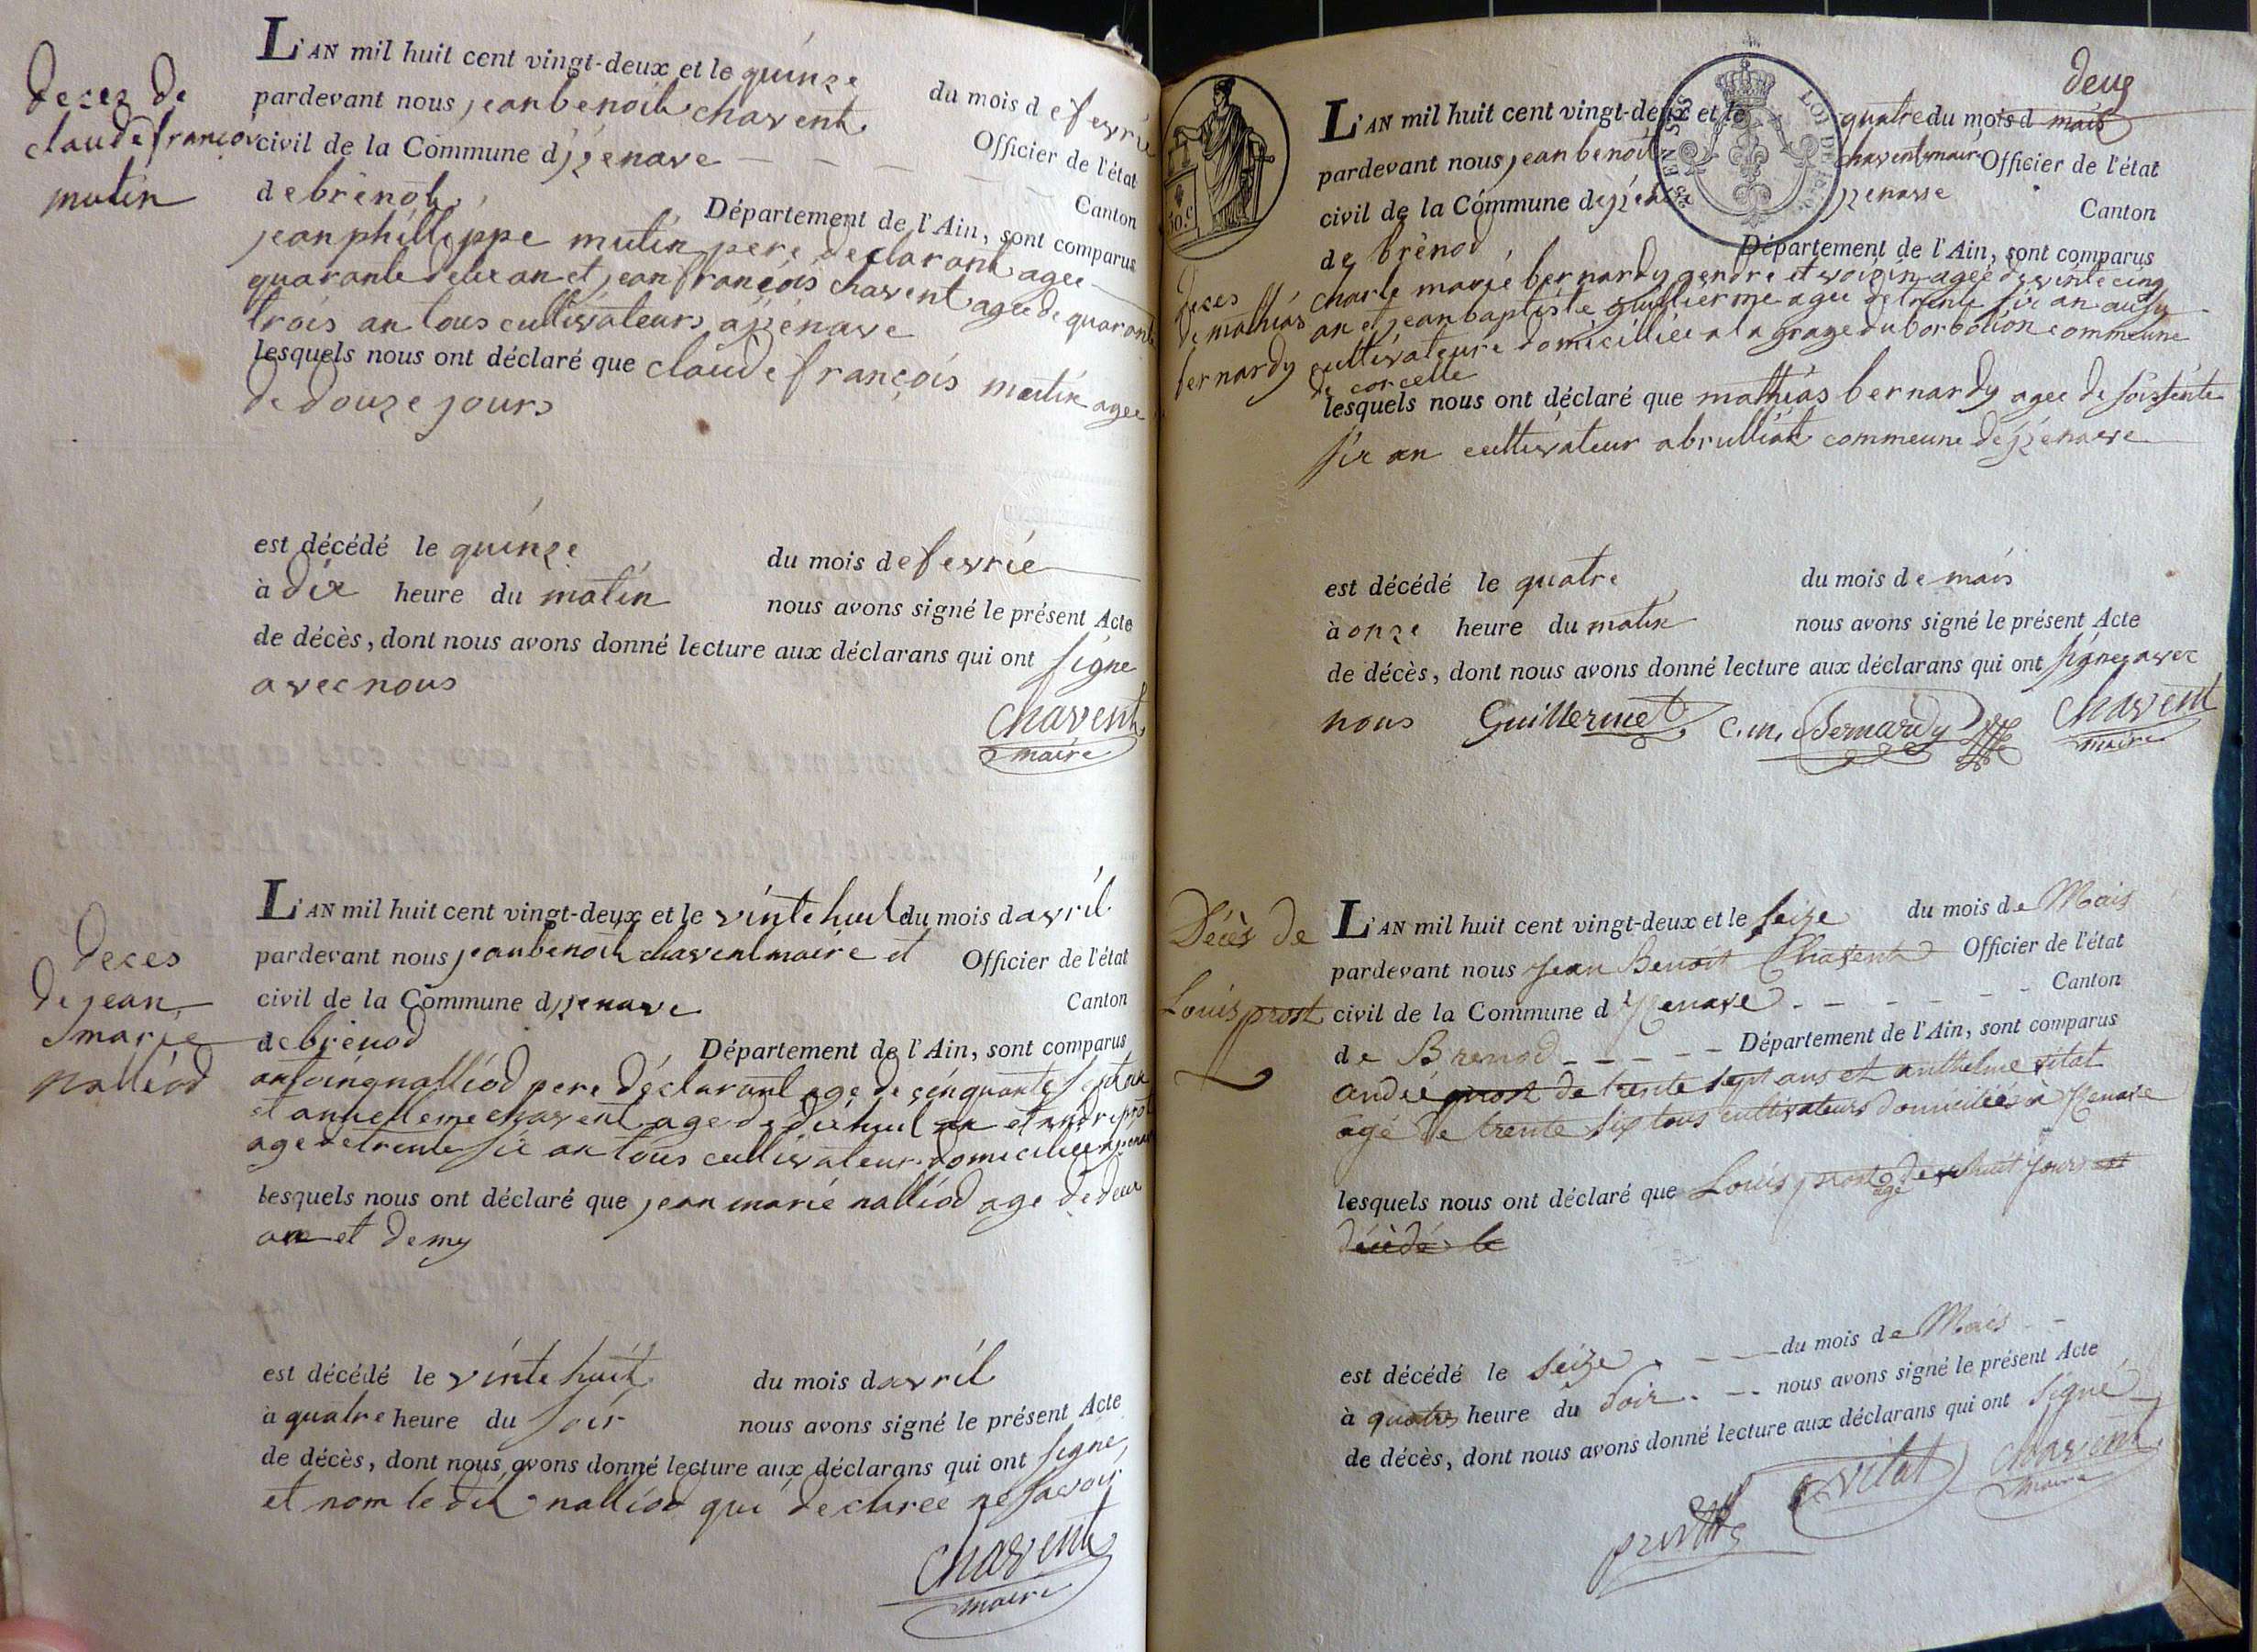 decez de
claude françois
mutin
L'AN mil huit cent vingt-deux et le quinze du mois d e fevrie
pardevant nous jean benoit chavent Officier de l'état
civil de la Commune d izenave Canton
de brènod Département de l'Ain, sont comparus
jean phillippe mutin pere declarant agee
quarante deux an et jean françois chavent agee de quarante
trois an tous cultivateurs a izenave
lesquels nous ont déclaré que claude françois mutin agee
de douze jours
est décédé le quinze du mois de fevrie
à dix heure du matin nous avons signé le présent Acte
de décès, dont nous avons donné lecture aux déclarans qui ont signe
avec nous
Chavent
maire
deces
de jean
marie
nalliod
L'AN mil huit cent vingt-deux et le vinte huit du mois d avril
pardevant nous jean benoit chavent maire et Officier de l'état
civil de la Commune d izenave Canton
de brenod Département de l'Ain, sont comparus
antoine nalliod pere déclarant age de cinquante sept an
et chavent age de dix huit an et andre prost
age de trente six an tous cultivateur domiciliee
lesquels nous ont déclaré que jean marie nalliod age de deux
an et demy
est décédé le vinte huit du mois d avril
à quatre heure du soir nous avons signé le présent Acte
de décès, dont nous avons donné lecture aux déclarans qui ont signe
et nom le dit nalliod qui declaree ne savoir
Chavent
maire
deux
50.c
LOI DE
deces
de mathias
bernardy
L'AN mil huit cent vingt-deux et le quatre du mois d mais
pardevant nous jean benoit chavent maire Officier de l'état
civil de la Commune de izenave Canton
de brènod Département de l'Ain, sont comparus
charle marie bernardy gendre et voisin agee de vinte cinq
an et jean baptiste guillierme agee de trente six an
cultivateurs domicilliée a la grange du borbolion commeune
de corcelle
lesquels nous ont déclaré que mathias bernardy agee de soissente
six an cultivateur a brulliat commeune d izenave
est décédé le quatre du mois de mais
à onze heure du matin nous avons signé le présent Acte
de décès, dont nous avons donné lecture aux déclarans qui ont signe avec
nous Guillermet C. m. Bernardy Chavent
maire
Décès de
Louis prost
L'AN mil huit cent vingt-deux et le seize du mois de Mais
pardevant nous Jean Benoit Chavent Officier de l'état
civil de la Commune d'Izenave Canton
de Brenod Département de l'Ain, sont comparus
André prost de trente sept ans et anthelme vitat
agé de trente six tous cultivateurs domiciliés à Izenave
lesquels nous ont déclaré que Louis prost agé de huit jours est
décédé le
est décédé le seize du mois de Mais
à quatre heure du soir nous avons signé le présent Acte
de décès, dont nous avons donné lecture aux déclarans qui ont signé
prost vitat Chavent
maire